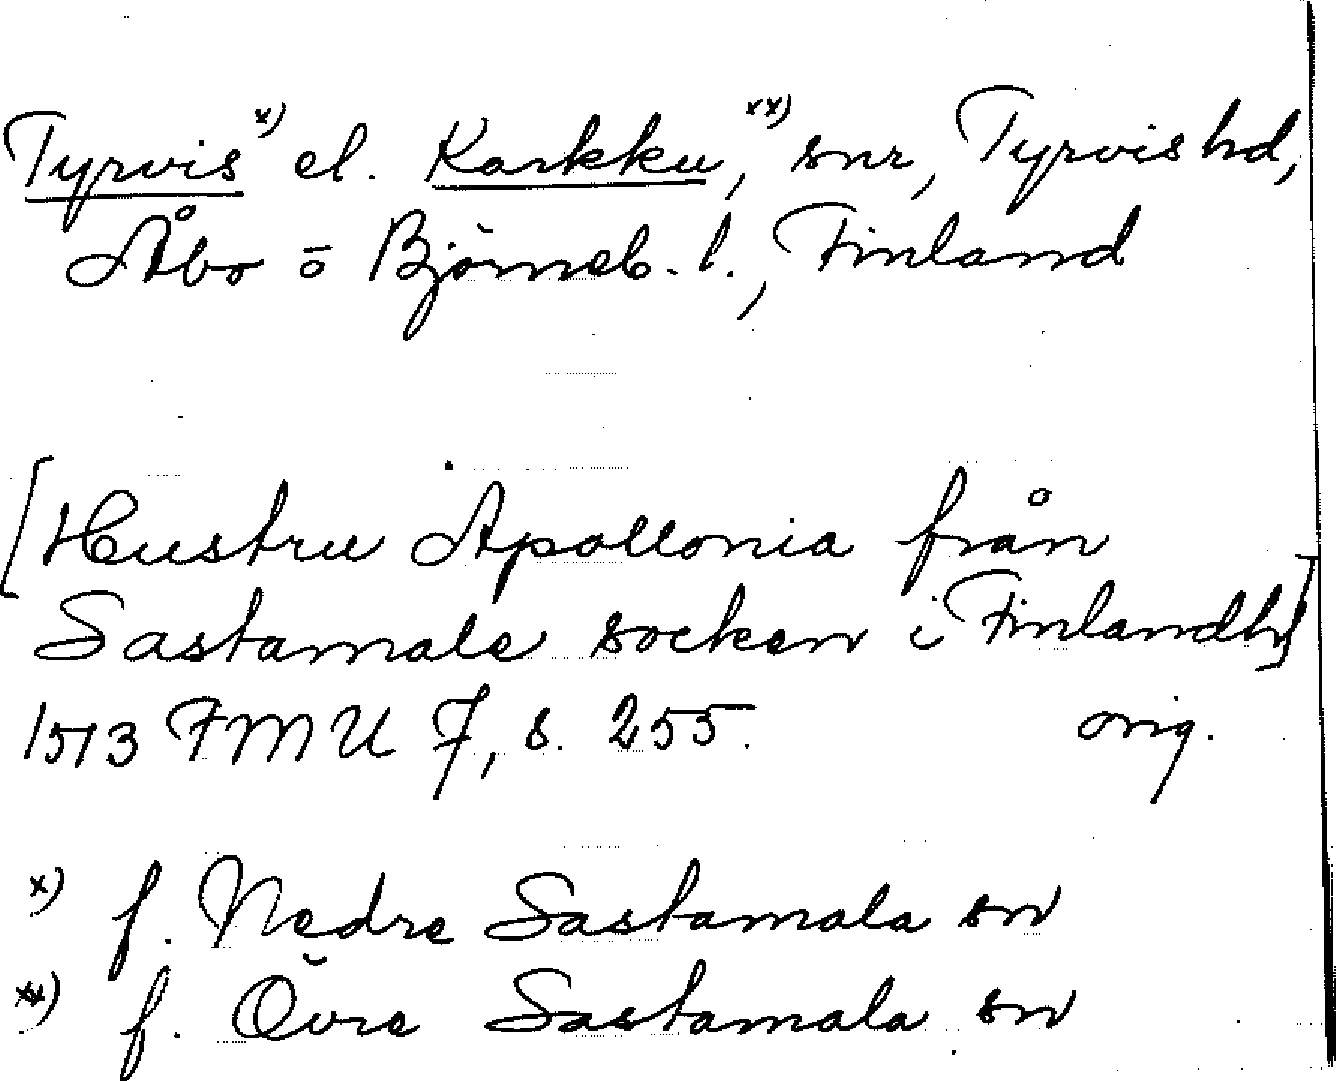 Tyrvis x) el. Karkku, xx) snr, Tyrvis hd,
Åbo o Björneb. l., Finland
[Hustru Apollonia från
Sastamale socken i Finlandh]
1513 FMU 7, s. 255. orig.
x) f. Nedre Sastamala sn
xx) f. Övre Sastamala sn